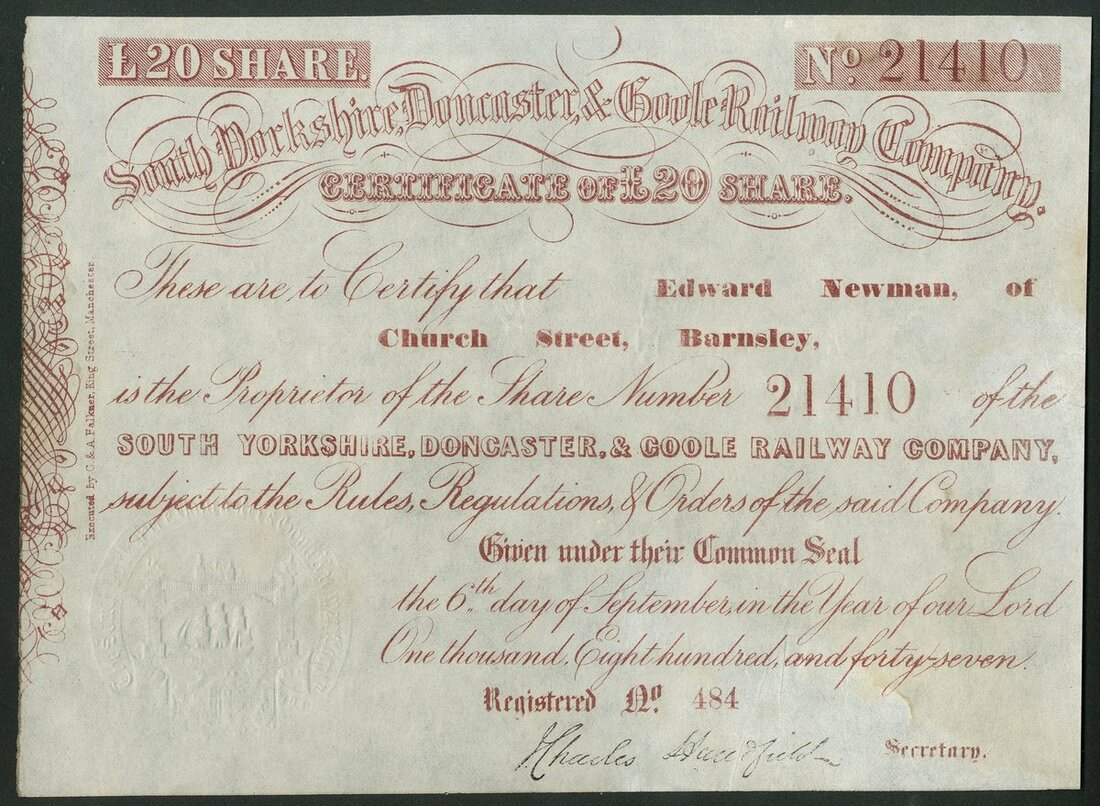 £20 SHARE.
No. 21410
South Yorkshire, Doncaster, & Goole Railway Company.
CERTIFICATE OF £20 SHARE.
These are to Certify that Edward Newman, of
Church Street, Barnsley,
is the Proprietor of the Share Number 21410 of the
SOUTH YORKSHIRE, DONCASTER, & GOOLE RAILWAY COMPANY,
subject to the Rules, Regulations, & Orders of the said Company.
Given under their Common Seal
the 6th day of September, in the Year of our Lord
One thousand, Eight hundred, and forty-seven.
Registered No. 484
Charles Secretary.
Executed by C. & A. Falkner, King Street, Manchester.